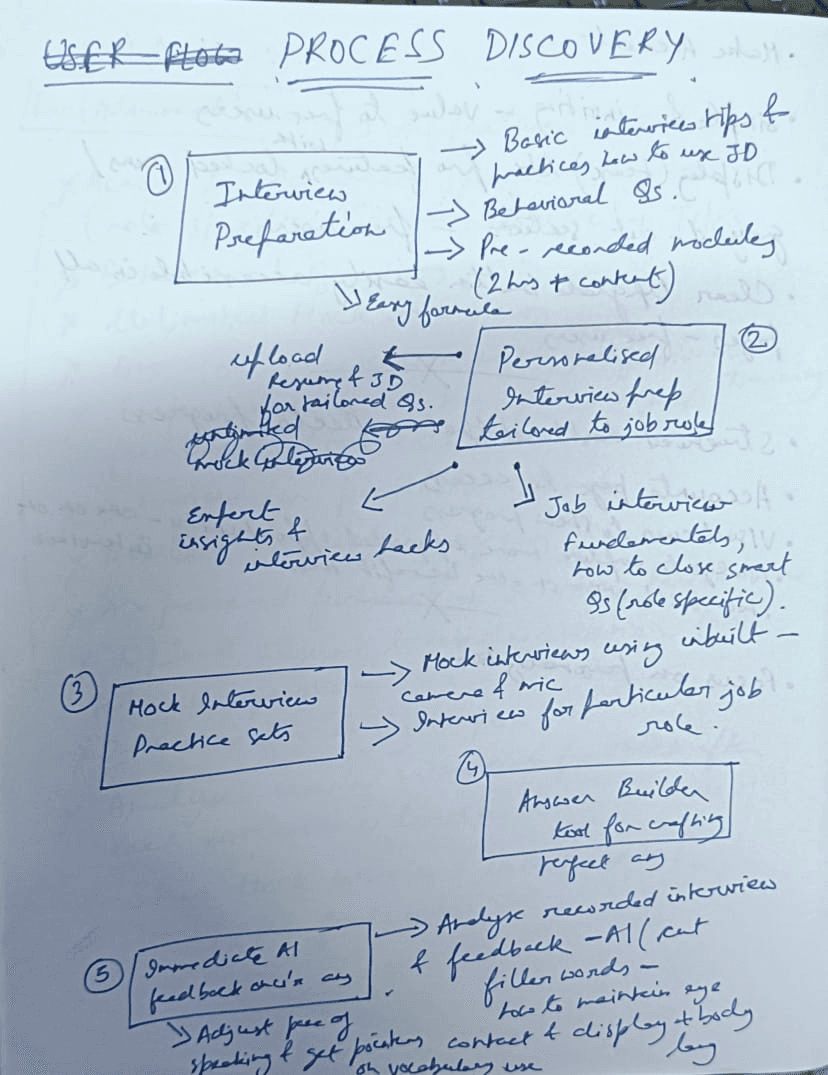 USER FLOW PROCESS DISCOVERY
① Interview
Preparation
→ Basic interview tips &
practices how to use JD
→ Behavioral Qs.
→ Pre-recorded modules
(2 hrs + content)
Easy formula
② Personalised
Interview prep
tailored to job role
upload
Resume & JD
for tailored Qs.
unlimited
mock interviews
Expert
insights &
interview hacks
Job interview
fundamentals,
how to close smart
Qs (role specific).
③ Mock Interview
Practice Sets
→ Mock interviews using inbuilt –
camera & mic
→ Interview for particular job
role.
④ Answer Builder
tool for crafting
perfect ans
⑤ Immediate AI
feedback on ans
→ Analyse recorded interview
& feedback – AI (cut
filler words –
how to maintain eye
contact & display + body
lang
Adjust pace of
speaking & get pointers
on vocabulary use